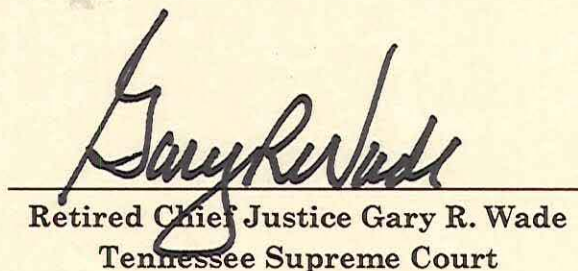 Gary R Wade
Retired Chief Justice Gary R. Wade
Tennessee Supreme Court